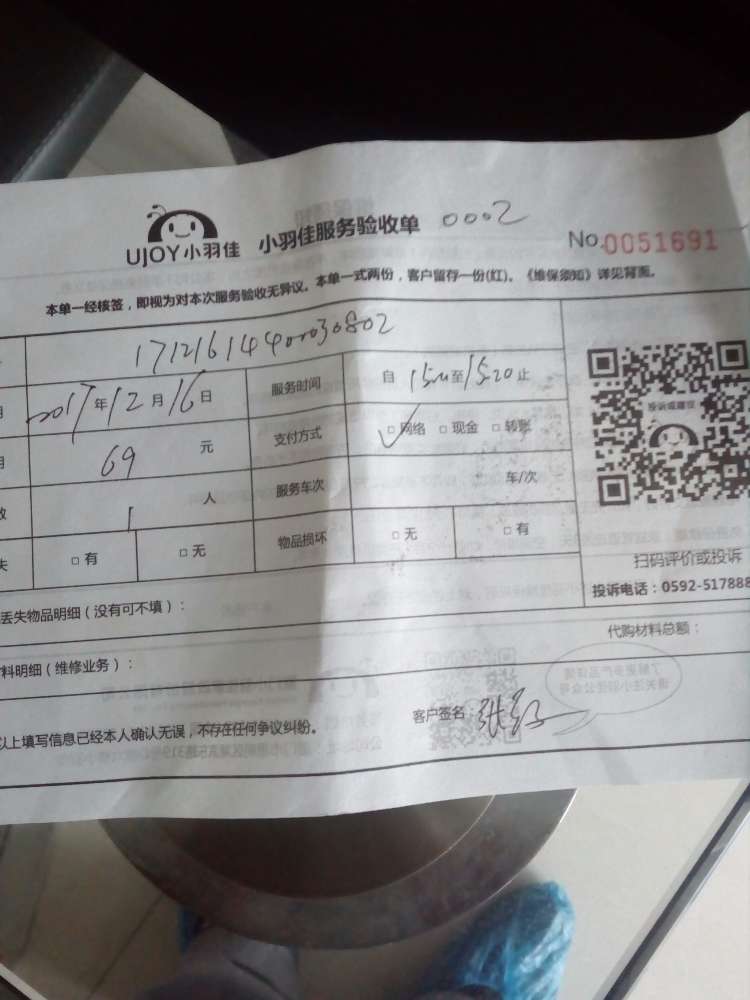 UJOY小羽佳 小羽佳服务验收单 0002
No.0051691
本单一经核签，即视为对本次服务验收无异议。本单一式两份，客户留存一份(红)。《维保须知》详见背面。
17121614400030802
2017年12月16日 服务时间 自 至15:20止
69 元 支付方式 ☑网络 □现金 □转账
1 人 服务车次 车/次
失 □有 □无 物品损坏 □无 □有
投诉或建议
扫码评价或投诉
投诉电话：0592-517888
丢失物品明细（没有可不填）：
代购材料总额：
料明细（维修业务）：
以上填写信息已经本人确认无误，不存在任何争议纠纷。
客户签名：张